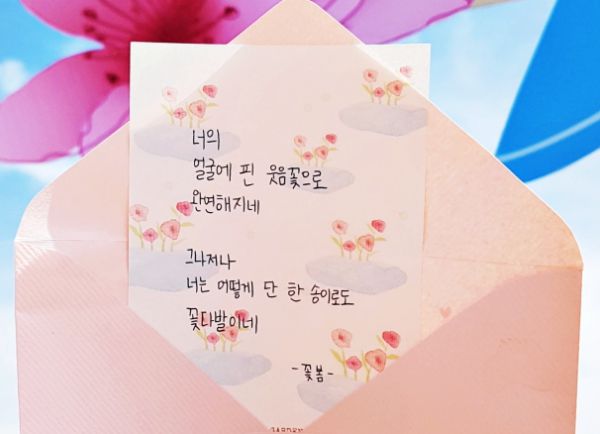 너의
얼굴에 핀 웃음꽃으로
완연해지네
그나저나
너는 어떻게 단 한 송이로도
꽃다발이네
-꽃봄-